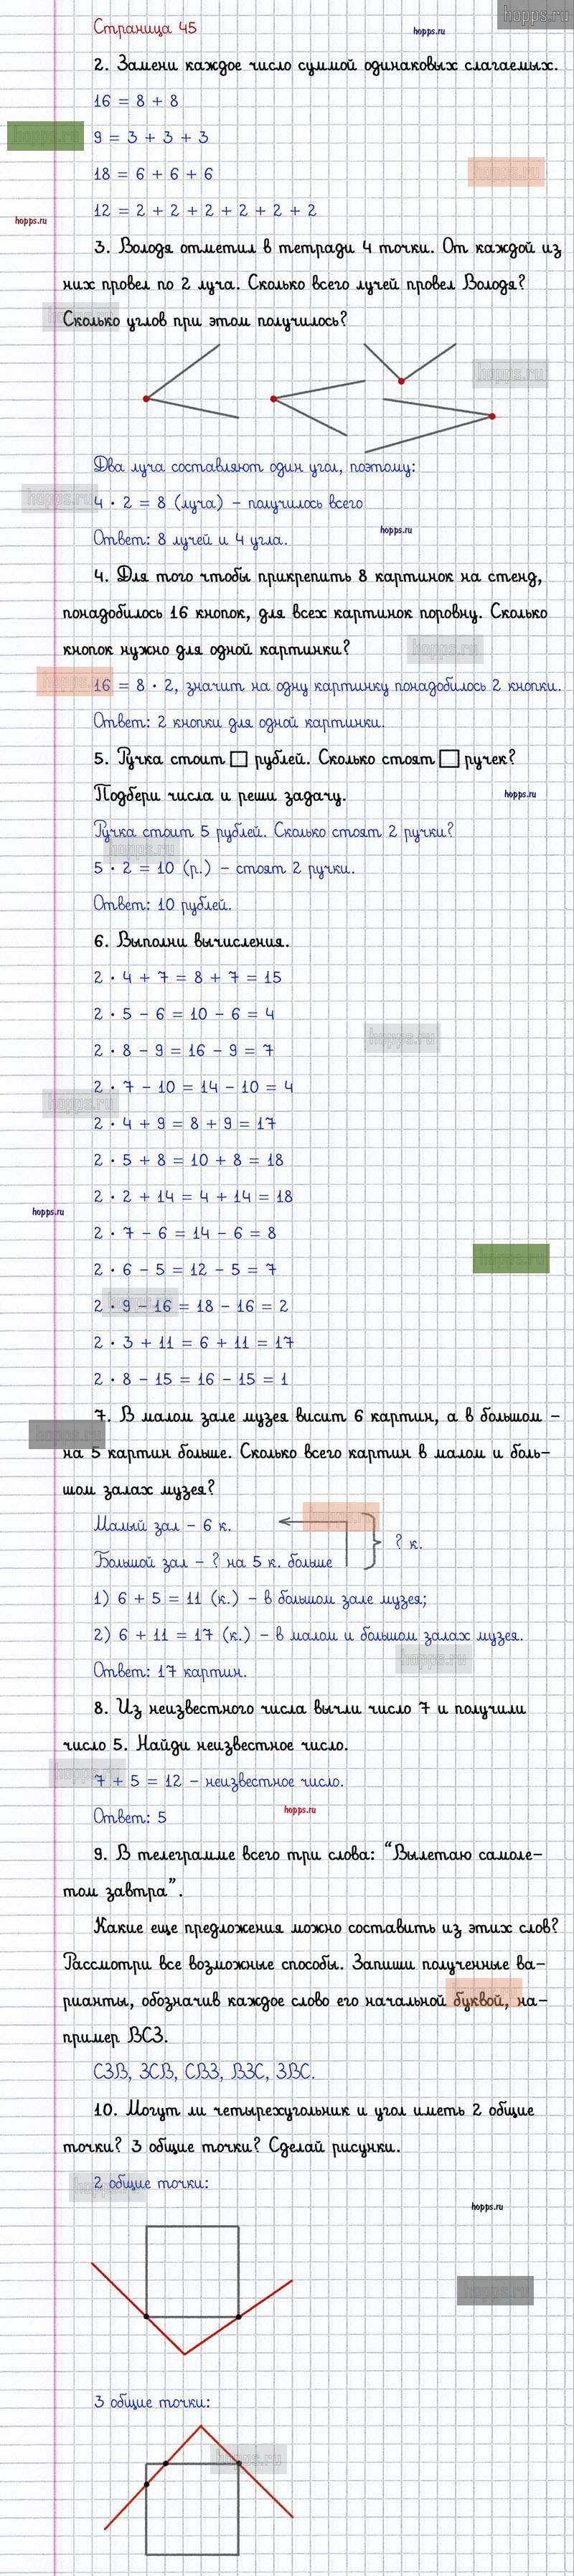 Страница 45
hopps.ru
hopps.ru
2. Замени каждое число суммой одинаковых слагаемых.
16 = 8 + 8
hopps.ru
9 = 3 + 3 + 3
hopps.ru
18 = 6 + 6 + 6
12 = 2 + 2 + 2 + 2 + 2 + 2
hopps.ru
3. Володя отметил в тетради 4 точки. От каждой из
них провел по 2 луча. Сколько всего лучей провел Володя?
hopps.ru
Сколько углов при этом получилось?
hopps.ru
Два луча составляют один угол, поэтому:
hopps.ru
4 · 2 = 8 (луча) – получилось всего
hopps.ru
Ответ: 8 лучей и 4 угла.
4. Для того чтобы прикрепить 8 картинок на стенд,
понадобилось 16 кнопок, для всех картинок поровну. Сколько
кнопок нужно для одной картинки?
hopps.ru
hopps.ru
16 = 8 · 2, значит на одну картинку понадобилось 2 кнопки.
Ответ: 2 кнопки для одной картинки.
5. Ручка стоит □ рублей. Сколько стоят □ ручек?
Подбери числа и реши задачу.
hopps.ru
Ручка стоит 5 рублей. Сколько стоят 2 ручки?
hopps.ru
5 · 2 = 10 (р.) – стоят 2 ручки.
Ответ: 10 рублей.
6. Выполни вычисления.
2 · 4 + 7 = 8 + 7 = 15
2 · 5 – 6 = 10 – 6 = 4
hopps.ru
2 · 8 – 9 = 16 – 9 = 7
2 · 7 – 10 = 14 – 10 = 4
hopps.ru
2 · 4 + 9 = 8 + 9 = 17
2 · 5 + 8 = 10 + 8 = 18
2 · 2 + 14 = 4 + 14 = 18
hopps.ru
2 · 7 – 6 = 14 – 6 = 8
hopps.ru
2 · 6 – 5 = 12 – 5 = 7
hopps.ru
2 · 9 – 16 = 18 – 16 = 2
2 · 3 + 11 = 6 + 11 = 17
2 · 8 – 15 = 16 – 15 = 1
7. В малом зале музея висит 6 картин, а в большом –
hopps.ru
на 5 картин больше. Сколько всего картин в малом и боль–
шом залах музея?
hopps.ru
Малый зал – 6 к.
? к.
Большой зал – ? на 5 к. больше
1) 6 + 5 = 11 (к.) – в большом зале музея;
2) 6 + 11 = 17 (к.) – в малом и большом залах музея.
hopps.ru
Ответ: 17 картин.
8. Из неизвестного числа вычли число 7 и получили
число 5. Найди неизвестное число.
hopps.ru
7 + 5 = 12 – неизвестное число.
hopps.ru
Ответ: 5
9. В телеграмме всего три слова: “Вылетаю самоле–
том завтра”.
Какие еще предложения можно составить из этих слов?
Рассмотри все возможные способы. Запиши полученные ва–
рианты, обозначив каждое слово его начальной буквой, на–
пример ВСЗ.
СЗВ, ЗСВ, СВЗ, ВЗС, ЗВС.
10. Могут ли четырехугольник и угол иметь 2 общие
точки? 3 общие точки? Сделай рисунки.
2 общие точки:
hopps.ru
hopps.ru
hopps.ru
3 общие точки:
hopps.ru